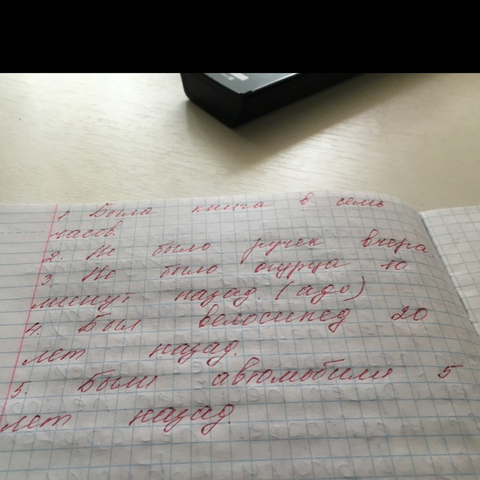 1. Была книга в семь
часов.
2. Не было ручек вчера
3. Не было огурца 10
минут назад. (ago)
4. Был велосипед 20
лет назад.
5. Были автомобили 5
лет назад.